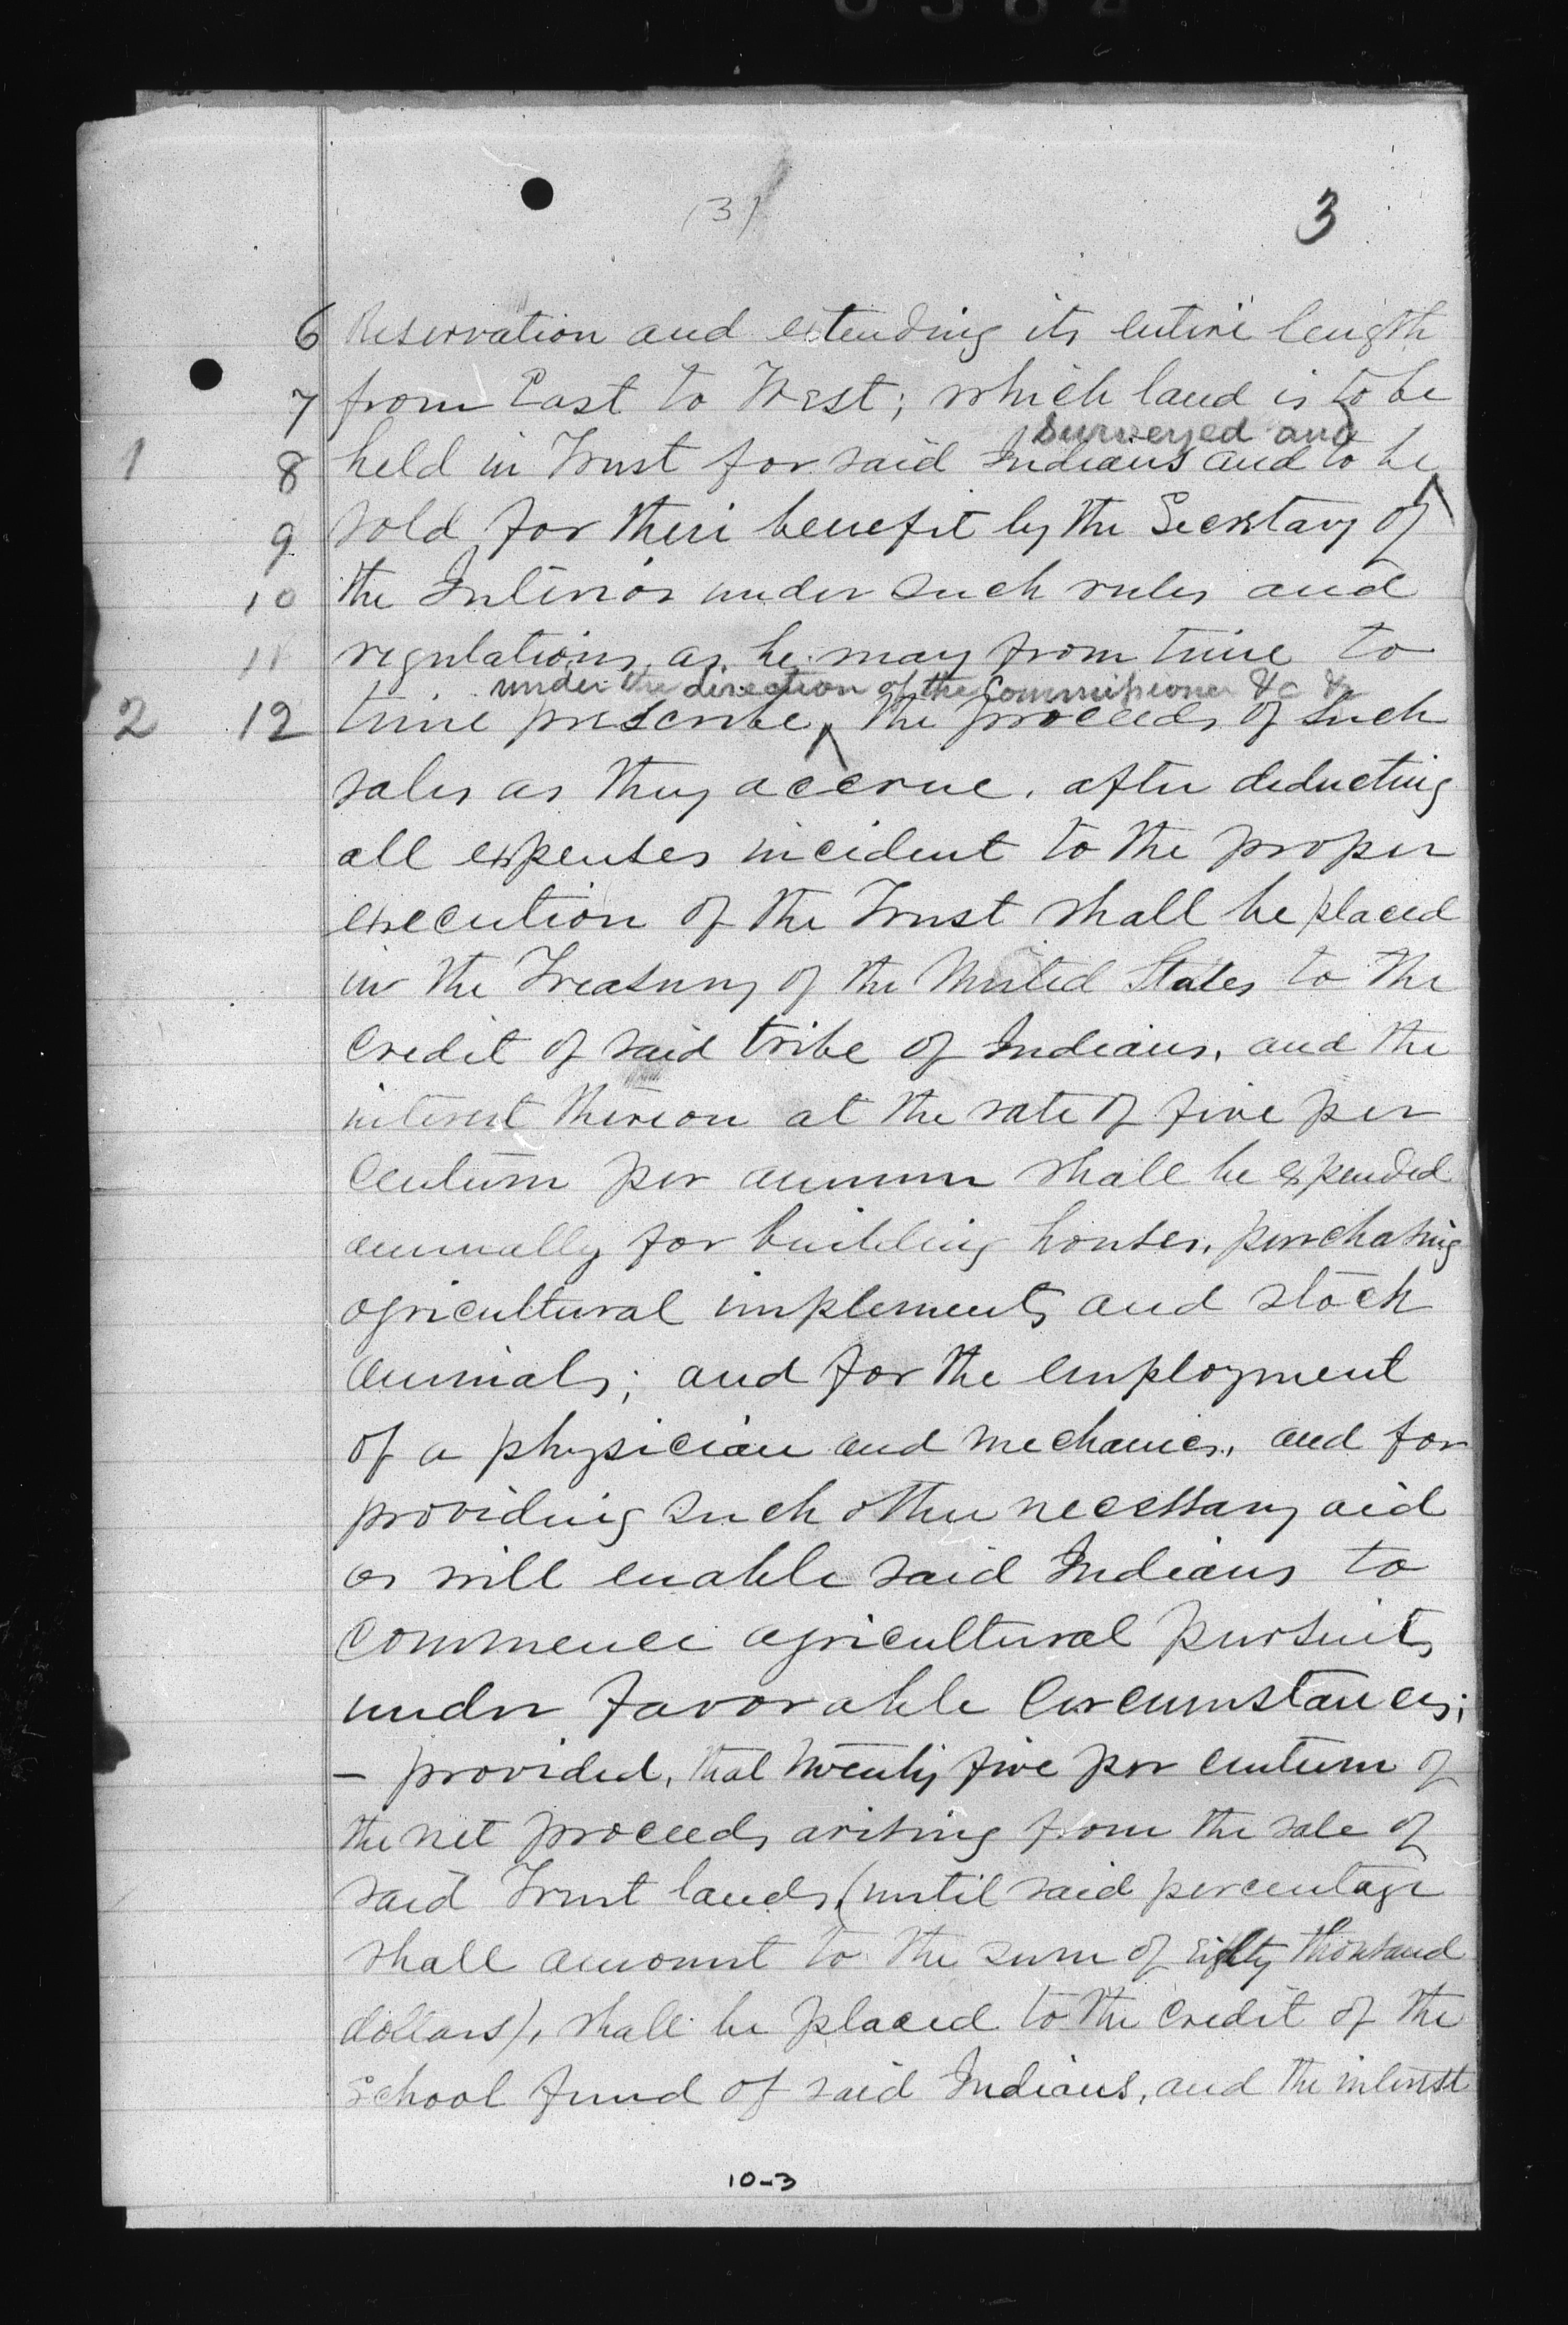 (3)
3
6 Reservation and extending its entire length
7 from East to West; which land is to be
surveyed and
1 8 held in Trust for said Indians and to be
9 sold for their benefit by the Secretary of
10 the Interior under such rules and
11 regulations, as he may from time to
under the direction of the Commissioner &c &
2 12 time prescribe, the proceeds of such
sales as they accrue, after deducting
all expenses incident to the proper
execution of the Trust shall be placed
in the Treasury of the United States to the
credit of said tribe of Indians, and the
interest thereon at the rate of five per
centum per annum shall be expended
annually for building houses, purchasing
agricultural implements and stock
animals; and for the employment
of a physician and mechanics, and for
providing such other necessary aid
as will enable said Indians to
commence agricultural pursuits
under favorable circumstances;
- provided, that twenty five per centum of
the net proceeds arising from the sale of
said Trust lands, (until said percentage
shall amount to the sum of eighty thousand
dollars), shall be placed to the credit of the
school fund of said Indians, and the interest
10-3